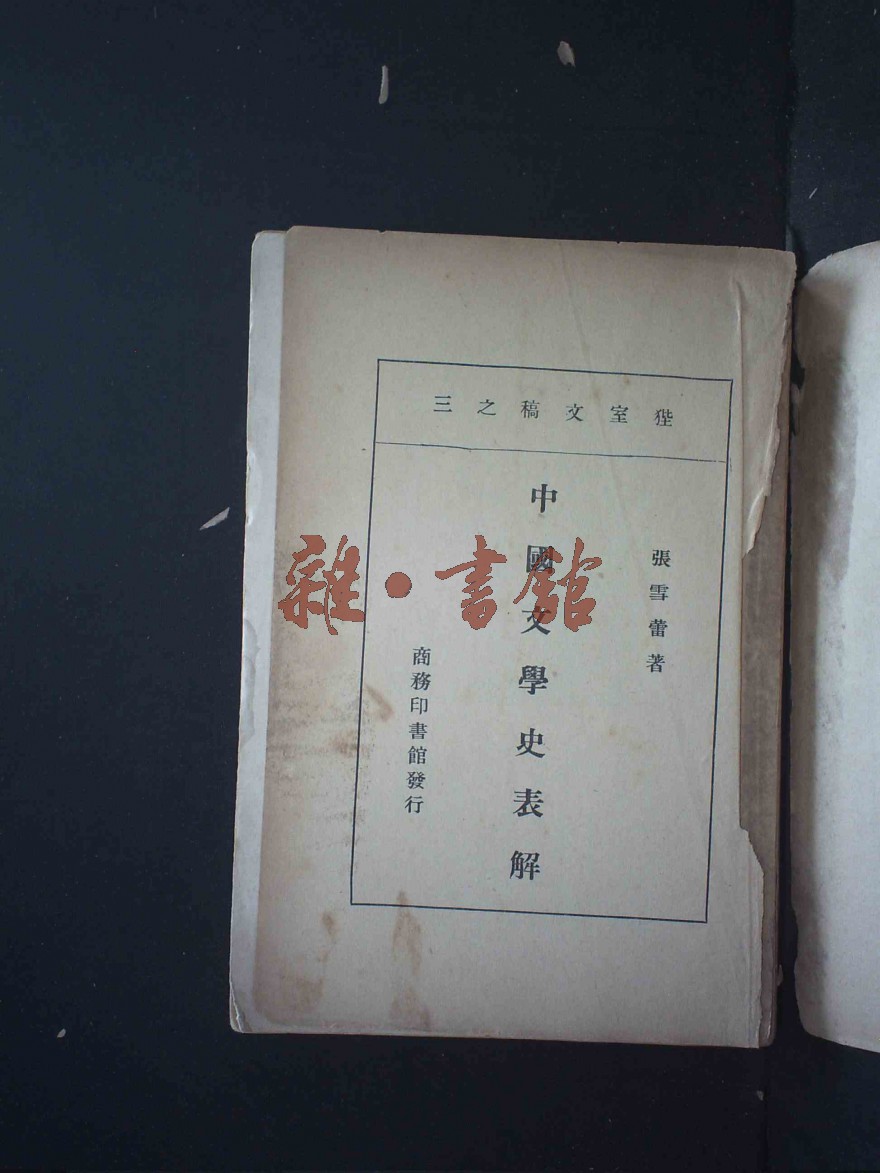 狴室文稿之三
張雪蕾著
中國文學史表解
商務印書館發行
雜·書館